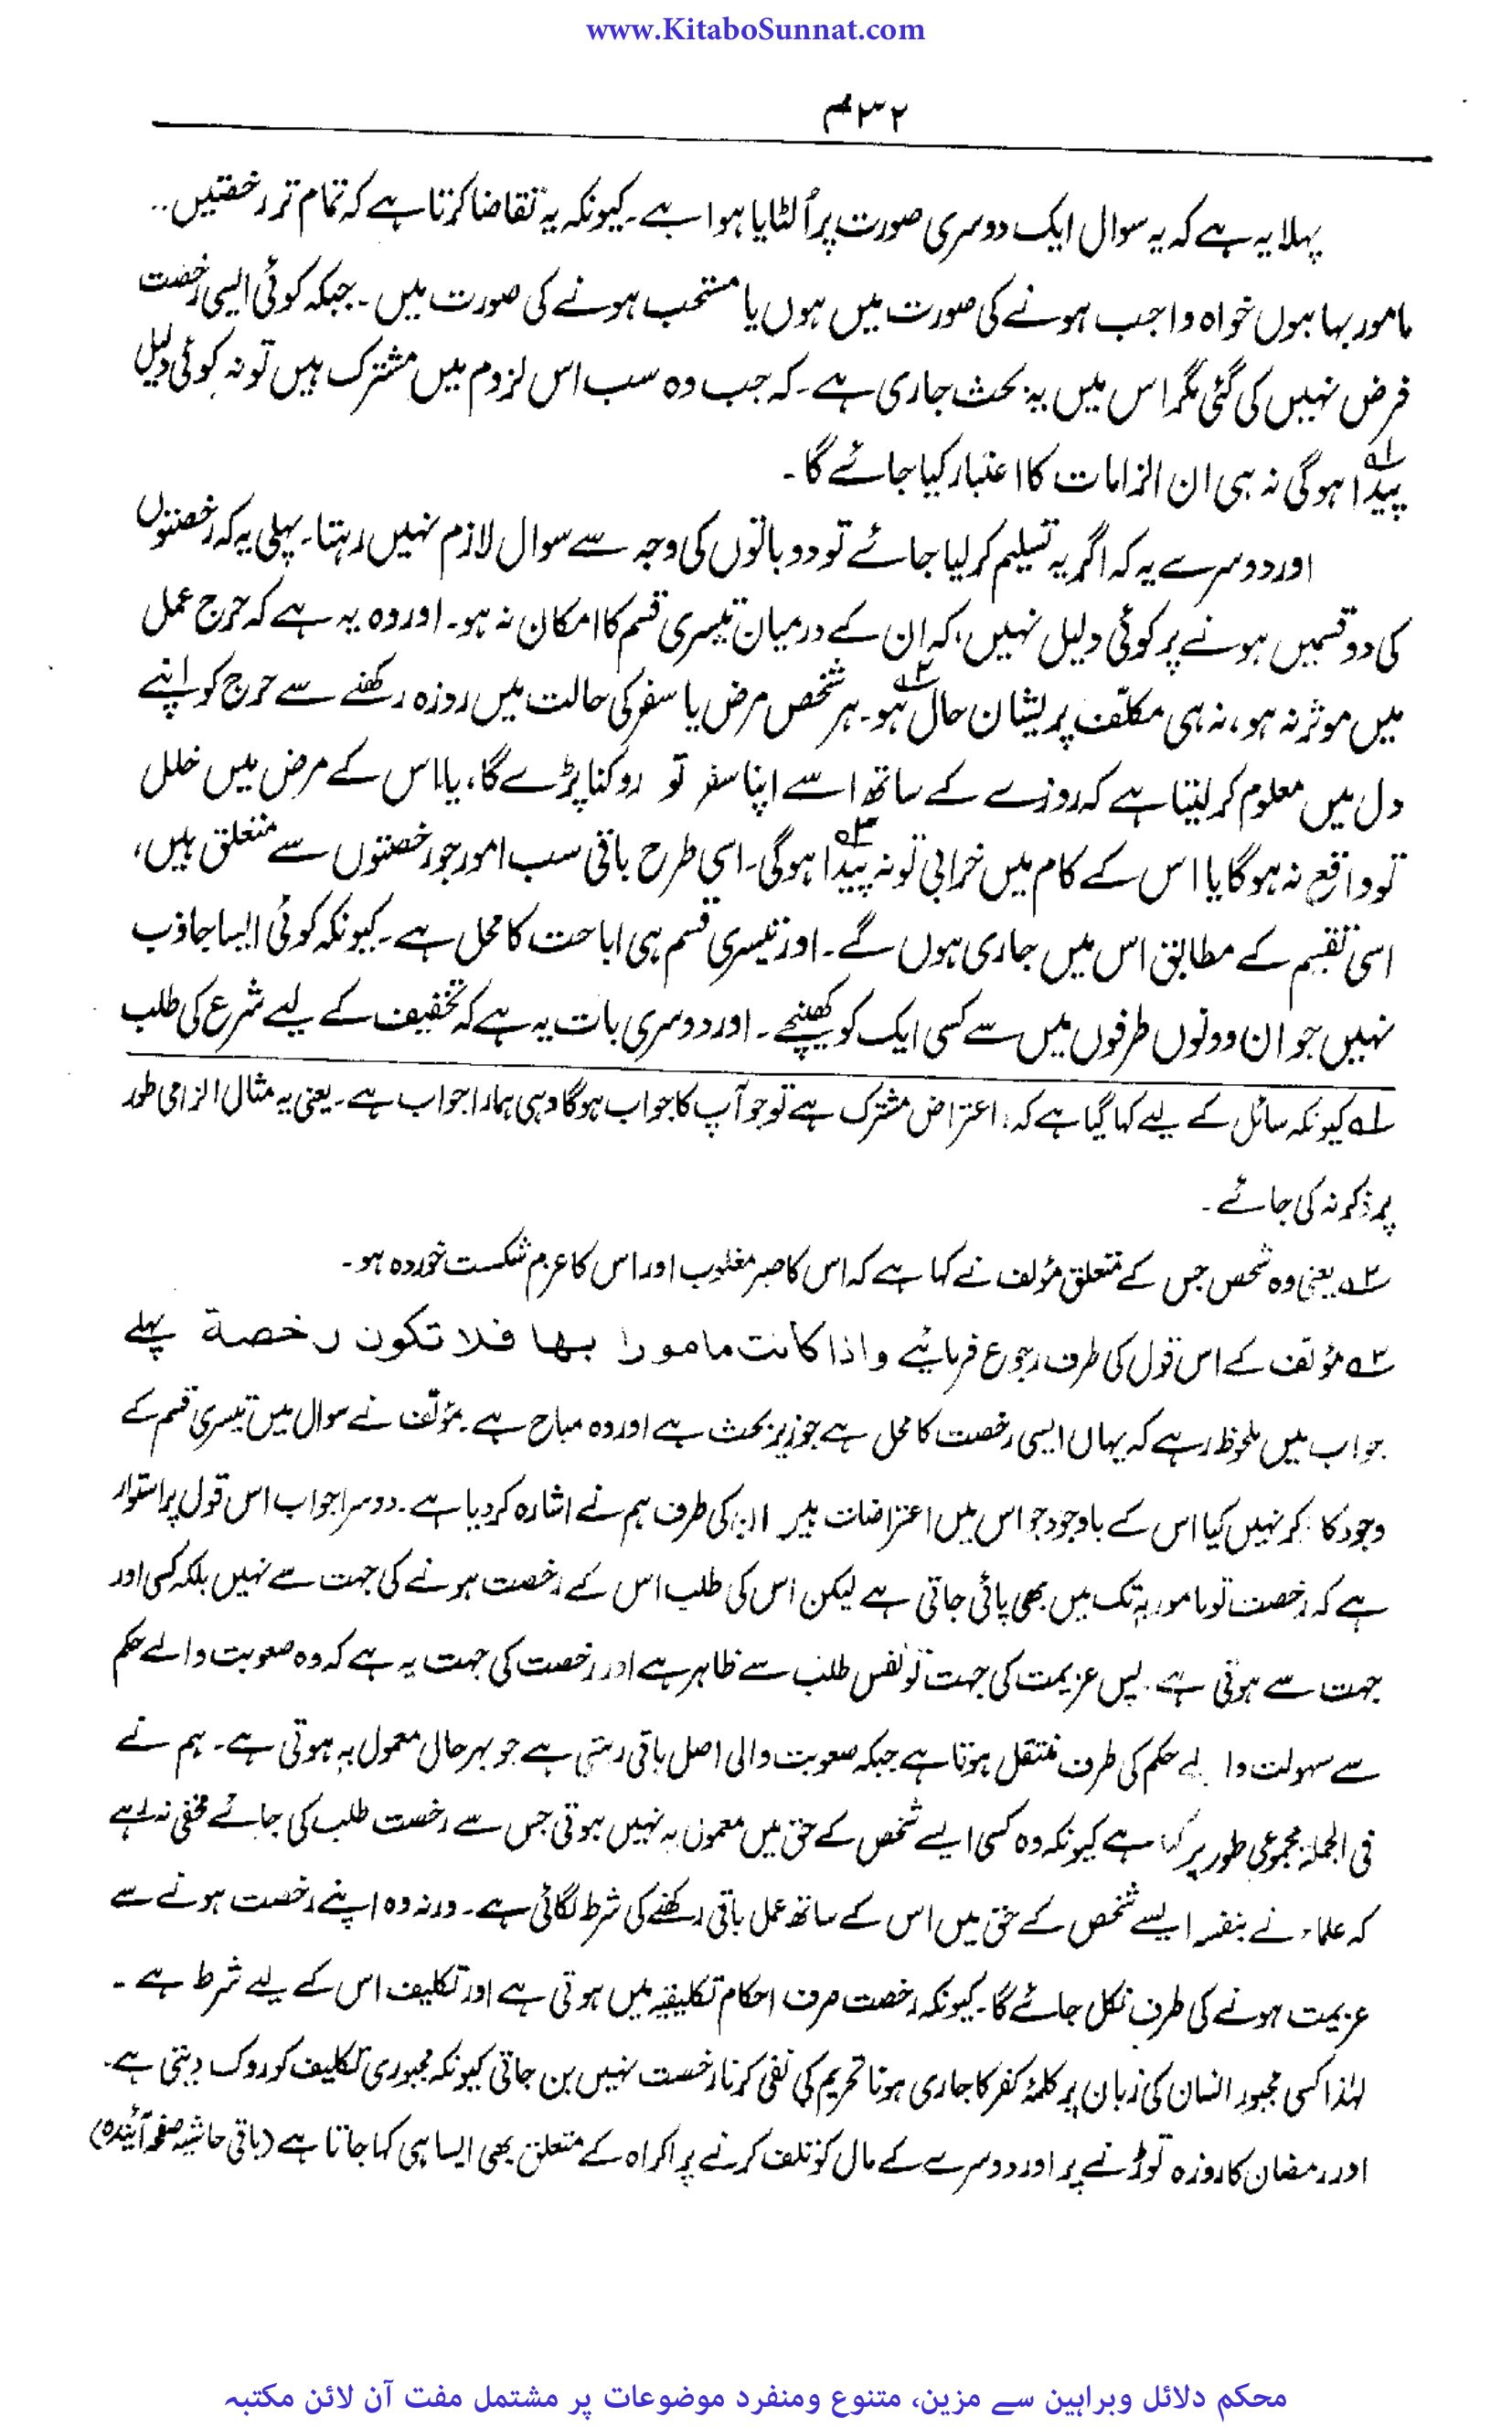 www.KitaboSunnat.com
۴۳۲
پہلا یہ ہے کہ یہ سوال ایک دوسری صورت پر اُلٹایا ہوا ہے۔ کیونکہ یہ تقاضا کرتا ہے کہ تمام تر رخصتیں..
مامور بہا ہوں خواہ واجب ہونے کی صورت میں ہوں یا مستحب ہونے کی صورت میں۔ جبکہ کوئی ایسی رخصت
فرض نہیں کی گئی مگر اس میں یہ بحث جاری ہے۔ کہ جب وہ سب اس لزوم میں مشترک ہیں تو نہ کوئی دلیل
پیدا ہوگی نہ ہی ان الزامات کا اعتبار کیا جائے گا۔ ؎۱
اور دوسرے یہ کہ اگر یہ تسلیم کر لیا جائے تو دو باتوں کی وجہ سے سوال لازم نہیں رہتا۔ پہلی یہ کہ رخصتوں
کی دو قسمیں ہونے پر کوئی دلیل نہیں، کہ ان کے درمیان تیسری قسم کا امکان نہ ہو۔ اور وہ یہ ہے کہ حرج عمل
میں موثر نہ ہو، نہ ہی مکلّف پریشان حال ؎۲ ہو۔ ہر شخص مرض یا سفر کی حالت میں روزہ رکھنے سے حرج کو اپنے
دل میں معلوم کر لیتا ہے کہ روزے کے ساتھ اسے اپنا سفر تو روکنا پڑے گا، یا اس کے مرض میں خلل
تو واقع نہ ہوگا یا اس کے کام میں خرابی تو نہ پیدا ؎۳ ہوگی۔ اسی طرح باقی سب امور جو رخصتوں سے متعلق ہیں،
اسی تقسیم کے مطابق اس میں جاری ہوں گے۔ اور تیسری قسم ہی اباحت کا محل ہے۔ کیونکہ کوئی ایسا جاذب
نہیں جو ان دونوں طرفوں میں سے کسی ایک کو کھینچے۔ اور دوسری بات یہ ہے کہ تخفیف کے لیے شرع کی طلب
؎۱ کیونکہ سائل کے لیے کہا گیا ہے کہ: اعتراض مشترک ہے تو جو آپ کا جواب ہوگا وہی ہمارا جواب ہے۔ یعنی یہ مثال الزامی طور
پر ذکر نہ کی جائے۔
؎۲ یعنی وہ شخص جس کے متعلق مؤلف نے کہا ہے کہ اس کا صبر مغلوب اور اس کا عزم شکست خوردہ ہو۔
؎۳ مؤلف کے اس قول کی طرف رجوع فرمائیے واذا کانت مامورا بها فلا تکون رخصة پہلے
جواب میں ملحوظ رہے کہ یہاں ایسی رخصت کا محل ہے جو زیر بحث ہے اور وہ مباح ہے۔ مؤلف نے سوال میں تیسری قسم کے
وجود کا ذکر نہیں کیا اس کے باوجود جو اس میں اعتراضات ہیں ان کی طرف ہم نے اشارہ کر دیا ہے۔ دوسرا جواب اس قول پر استوار
ہے کہ رخصت تو مامور بہ تک میں بھی پائی جاتی ہے لیکن اس کی طلب اس کے رخصت ہونے کی جہت سے نہیں بلکہ کسی اور
جہت سے ہوتی ہے۔ پس عزیمت کی جہت تو نفس طلب سے ظاہر ہے اور رخصت کی جہت یہ ہے کہ وہ صعوبت والے حکم
سے سہولت والے حکم کی طرف منتقل ہوتا ہے جبکہ صعوبت والی اصل باقی رہتی ہے جو بہرحال معمول بہ ہوتی ہے۔ ہم نے
فی الجملہ مجموعی طور پر کہا ہے کیونکہ وہ کسی ایسے شخص کے حق میں معمول بہ نہیں ہوتی جس سے رخصت طلب کی جائے مخفی نہ رہے
کہ علماء نے ایسے شخص کے حق میں اس کے ساتھ عمل باقی رکھنے کی شرط لگائی ہے۔ ورنہ وہ اپنے رخصت ہونے سے
عزیمت ہونے کی طرف نکل جائے گا۔ کیونکہ رخصت صرف احکام تکلیفیہ میں ہوتی ہے اور تکلیف اس کے لیے شرط ہے۔
لہٰذا کسی مجبور انسان کی زبان پر کلمۂ کفر کا جاری ہونا تحریم کی نفی کرنا رخصت نہیں بن جاتی کیونکہ مجبوری تکلیف کو روک دیتی ہے۔
اور رمضان کا روزہ توڑنے پر اور دوسرے کے مال کو تلف کرنے پر اکراہ کے متعلق بھی ایسا ہی کہا جاتا ہے (باقی حاشیہ صفحہ آئندہ)
محکم دلائل وبراہین سے مزین، متنوع ومنفرد موضوعات پر مشتمل مفت آن لائن مکتبہ